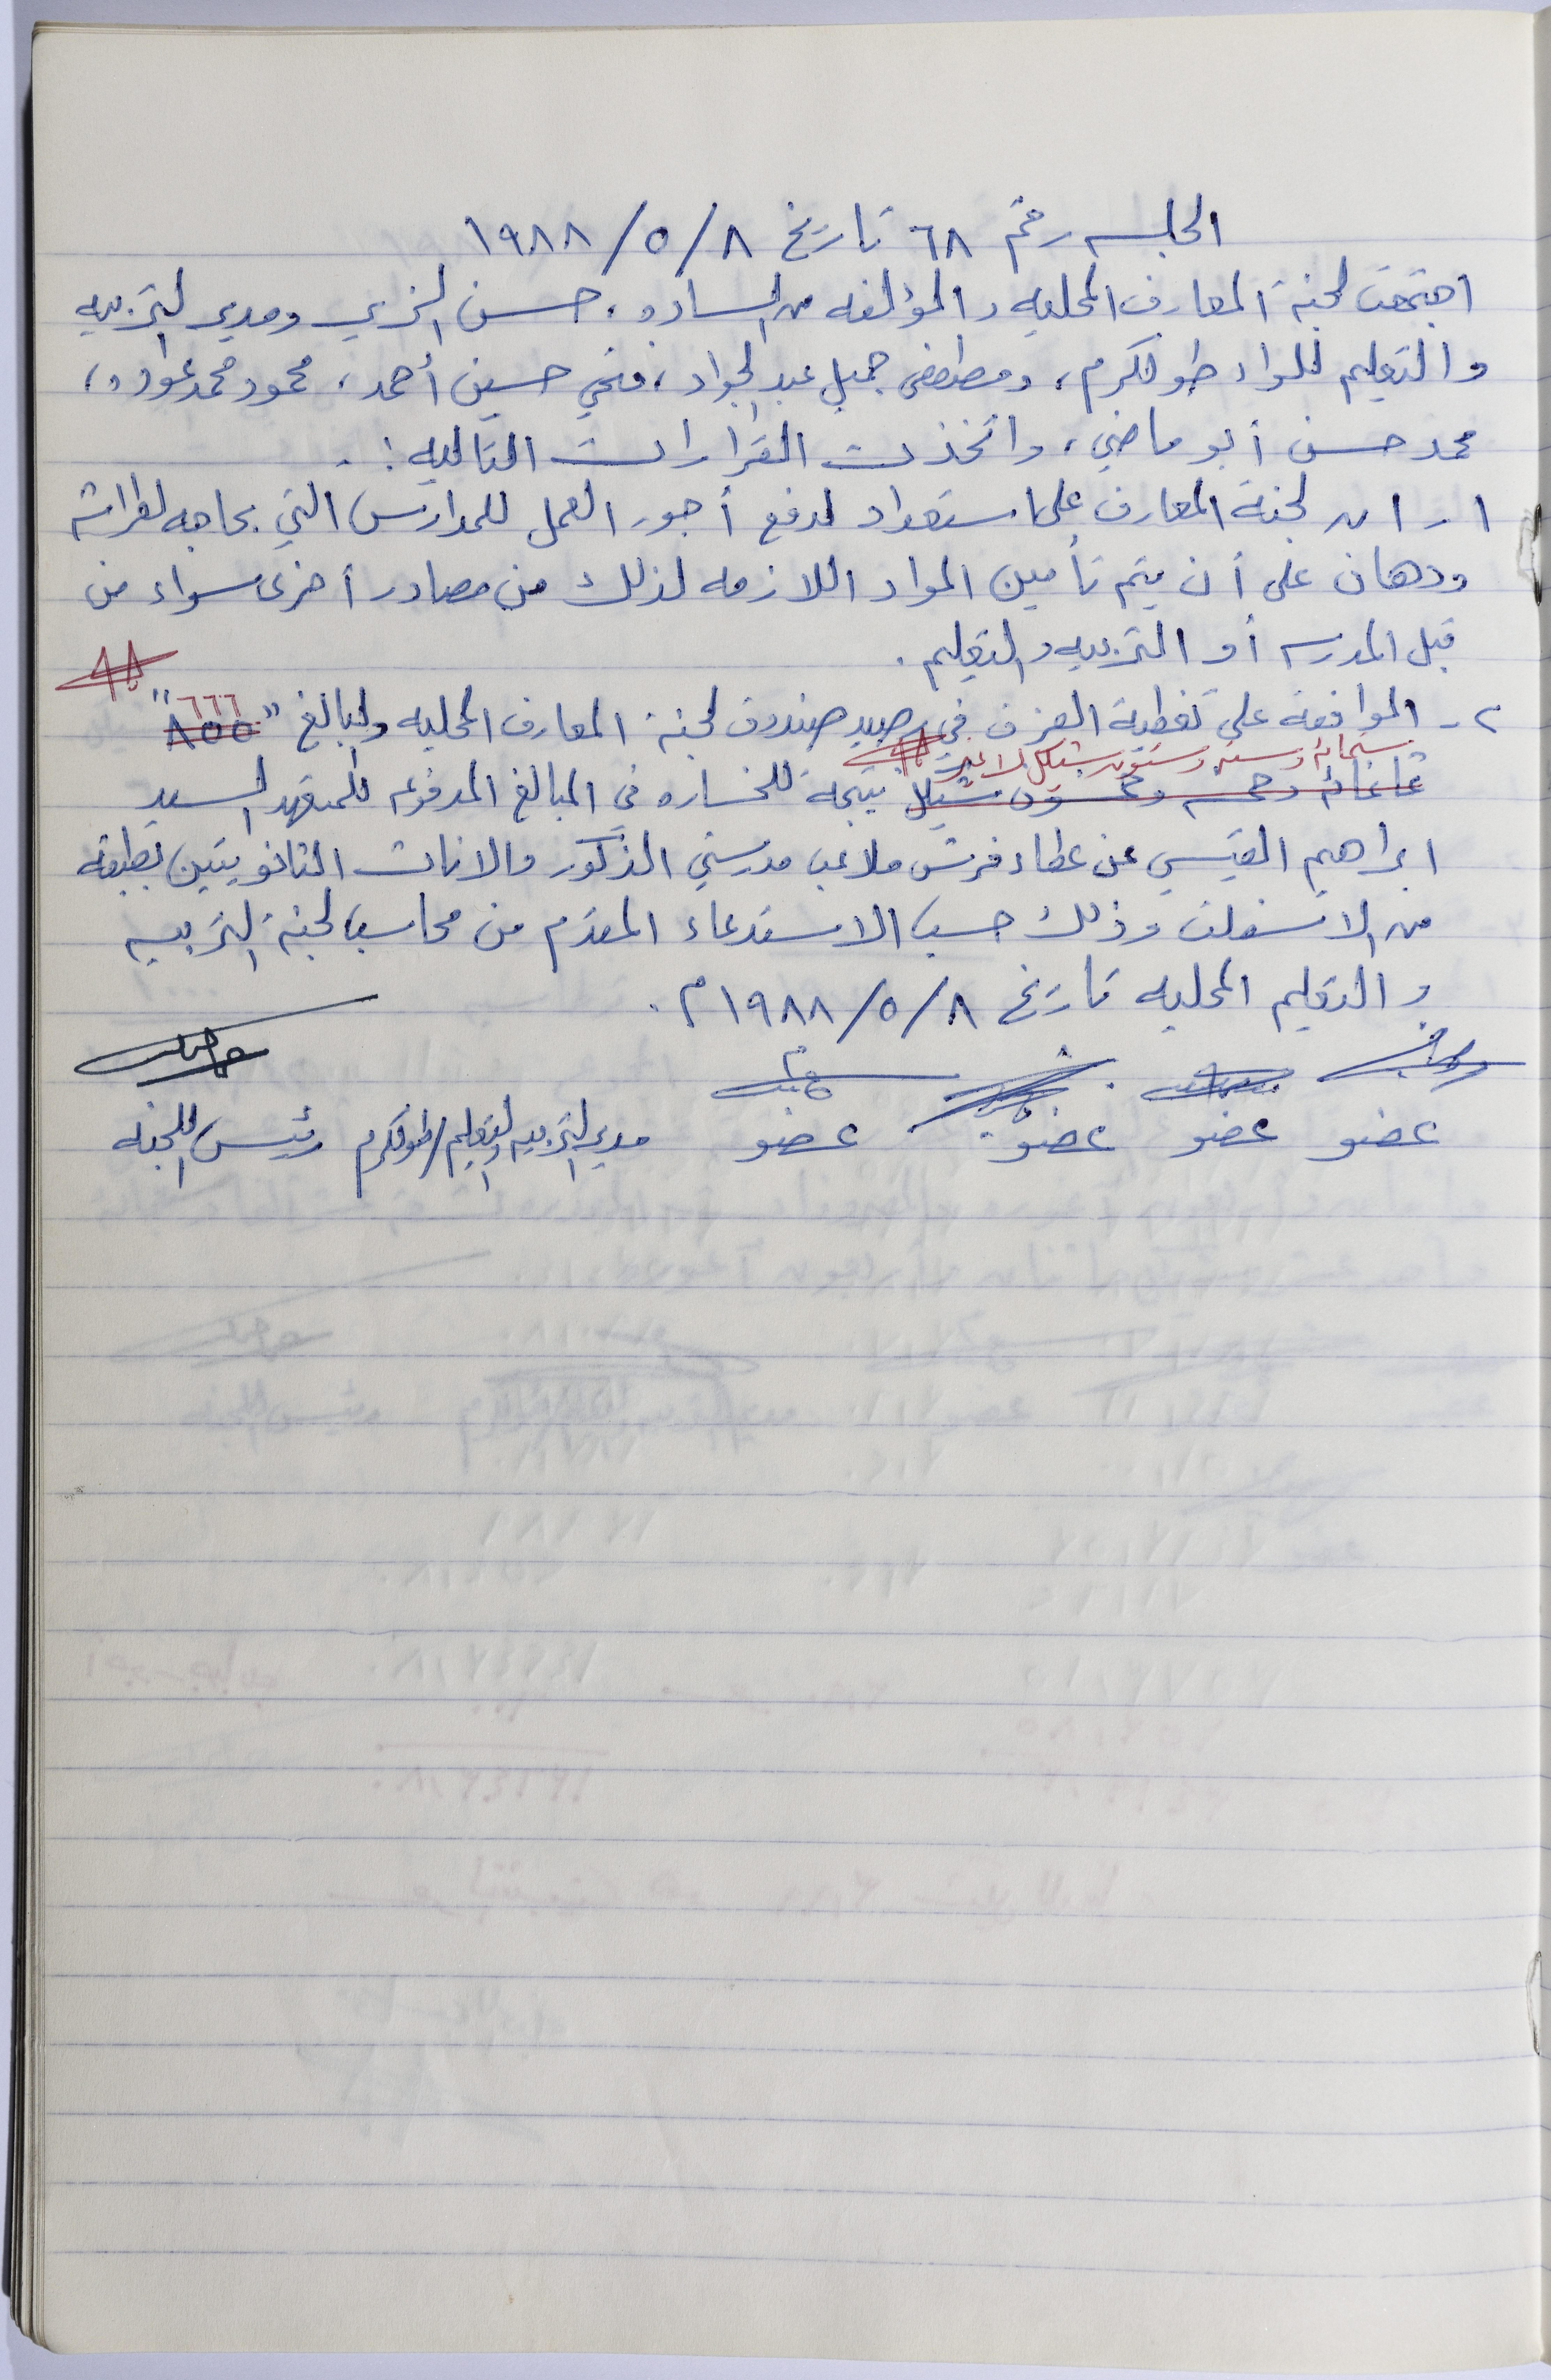 الجلسه رقم ٦٨ تاريخ ٨/٥/١٩٨٨
اجتمعت لجنة المعارف المحليه والمؤلفه من الساده، حسن الزي ومدير التربيه
والتعليم للواء طولكرم، ومصطفى جميل عبد الجواد، فتحي حسين أحمد، محمود محمد عواد،
محمد حسن أبو ماضي، واتخذت القرارات التاليه :.
١- ان لجنة المعارف على استعداد لدفع أجور العمل للمدارس التي بحاجه لطراشه
ودهان على أن يتم تأمين المواد اللازمه لذلك من مصادر أخرى سواء من
قبل المدرسه أو التربيه والتعليم.
٢- الموافقه على تغطية العجز في رصيد صندوق لجنة المعارف المحليه والبالغ "٨٥٥" ٦٦٦
ستمائه وسته وستون شيكل لا غير
ثمانمائه وخمسه وخمسون شيكل نتيجة للخساره في المبالغ المدفوعه للمتعهد السيد
ابراهيم القيسي عن عطاء فرش ملاعب مدرستي الذكور والاناث الثانويتين بطبقه
من الاسفلت وذلك حسب الاستدعاء المقدم من محاسب لجنة التربيه
والتعليم المحليه تاريخ ٨/٥/١٩٨٨م.
عضو عضو عضو عضو مدير التربيه والتعليم/طولكرم رئيس اللجنه